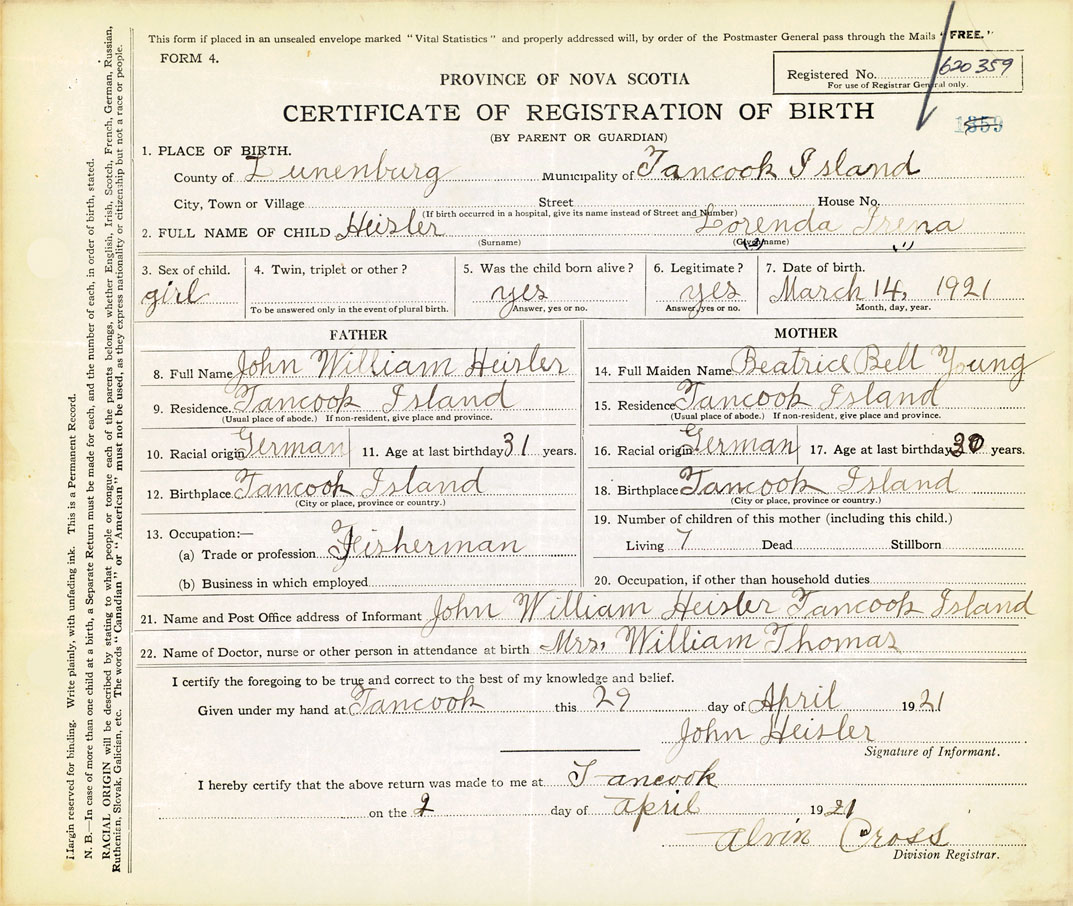 This form if placed in an unsealed envelope marked "Vital Statistics" and properly addressed will, by order of the Postmaster General pass through the Mails "FREE."
FORM 4.
Registered No. 620359
For use of Registrar General only.
PROVINCE OF NOVA SCOTIA
CERTIFICATE OF REGISTRATION OF BIRTH
1359
(BY PARENT OR GUARDIAN)
1. PLACE OF BIRTH.
County of Lunenburg Municipality of Tancook Island
City, Town or Village Street House No.
(If birth occurred in a hospital, give its name instead of Street and Number)
2. FULL NAME OF CHILD Heisler Lorenda Irena
(Surname) (Given name)
(2) (1)
3. Sex of child. 4. Twin, triplet or other? 5. Was the child born alive? 6. Legitimate? 7. Date of birth.
girl yes yes March 14, 1921
To be answered only in the event of plural birth. Answer, yes or no. Answer, yes or no. Month, day, year.
FATHER MOTHER
8. Full Name John William Heisler 14. Full Maiden Name Beatrice Bell Young
9. Residence Tancook Island 15. Residence Tancook Island
(Usual place of abode.) If non-resident, give place and province. (Usual place of abode.) If non-resident, give place and province.
10. Racial origin German 11. Age at last birthday 31 years. 16. Racial origin German 17. Age at last birthday 30 years.
12. Birthplace Tancook Island 18. Birthplace Tancook Island
(City or place, province or country.) (City or place, province or country.)
13. Occupation:— 19. Number of children of this mother (including this child.)
(a) Trade or profession Fisherman Living 7 Dead Stillborn
(b) Business in which employed 20. Occupation, if other than household duties
21. Name and Post Office address of Informant John William Heisler Tancook Island
22. Name of Doctor, nurse or other person in attendance at birth Mrs. William Thomas
I certify the foregoing to be true and correct to the best of my knowledge and belief.
Given under my hand at Tancook this 29 day of April 1921
John Heisler
Signature of Informant.
I hereby certify that the above return was made to me at Tancook
on the 9 day of april 1921
Alvin Cross
Division Registrar.
Margin reserved for binding. Write plainly, with unfading ink. This is a Permanent Record.
N. B.—In case of more than one child at a birth, a Separate Return must be made for each, and the number of each, in order of birth, stated.
RACIAL ORIGIN will be described by stating to what people or tongue each of the parents belongs, whether English, Irish, Scotch, French, German, Russian,
Ruthenian, Slovak, Galician, etc. The words "Canadian" or "American" must not be used, as they express nationality or citizenship but not a race or people.